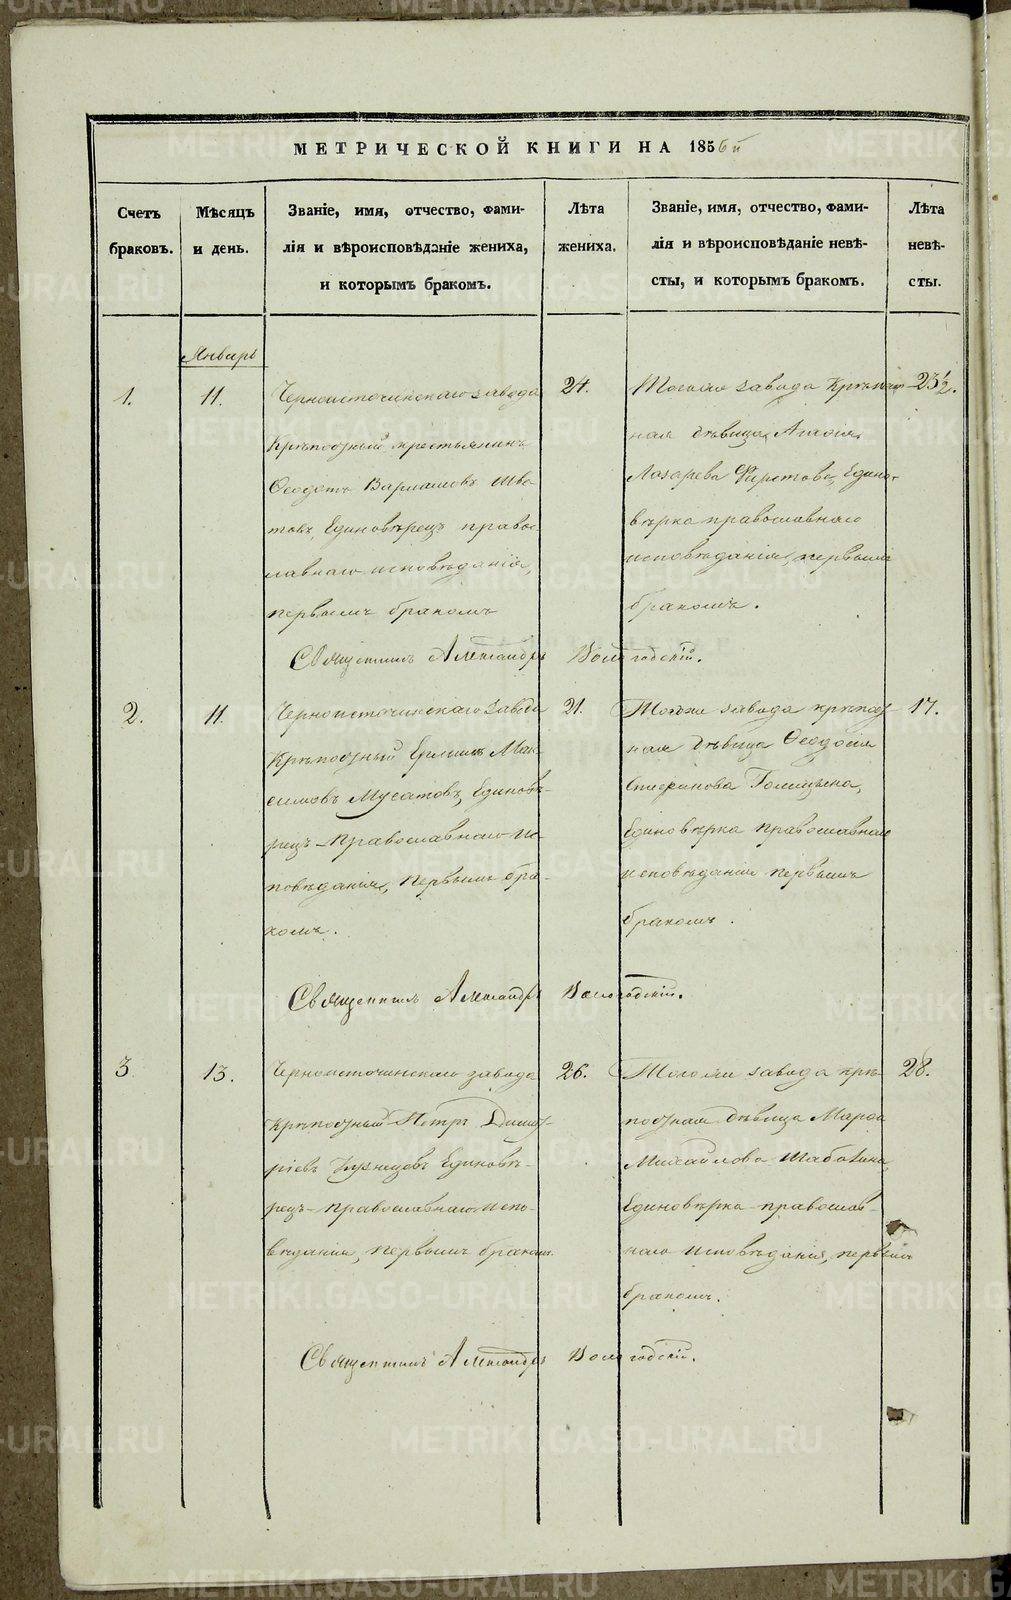 МЕТРИЧЕСКОЙ КНИГИ НА 1856й
Счетъ браковъ.
Мѣсяцъ и день.
Званіе, имя, отчество, фами-
лія и вѣроисповѣданіе жениха,
и которымъ бракомъ.
Лѣта жениха.
Званіе, имя, отчество, фами-
лія и вѣроисповѣданіе невѣ-
сты, и которымъ бракомъ.
Лѣта невѣ-
сты.
Январь
1.
11.
Черноисточинскаго завода
Крѣпостный крестьянинъ
Ѳеодотъ Варламовъ
Единовѣрецъ право-
славнаго исповѣданія,
первымъ бракомъ
24.
Тогоже завода крѣпост-
ная дѣвица Агафія
Лазарева Едино-
вѣрка православнаго
исповѣданія, первымъ
бракомъ.
23½.
Священникъ Александръ Вологодскій.
2.
11.
Черноисточинскаго завода
Крѣпостный Мак-
симовъ Мусатовъ, Единовѣ-
рецъ православнаго ис-
повѣданія, первымъ бра-
комъ.
21.
Тогоже завода крѣпост-
ная дѣвица Ѳеодосія
Голицына,
Единовѣрка православнаго
исповѣданія первымъ
бракомъ.
17.
Священникъ Александръ Вологодскій.
3
13.
Черноисточинскаго завода
крѣпостный Петръ Димит-
ріевъ Кузнецовъ Единовѣ-
рецъ православнаго испо-
вѣданія, первымъ бракомъ.
26.
Тогоже завода крѣ-
постная дѣвица Марѳа
Михайлова Шабакина
Единовѣрка православ-
наго исповѣданія, первымъ
бракомъ.
28.
Священникъ Александръ Вологодскій.
METRIKI.GASO-URAL.RU